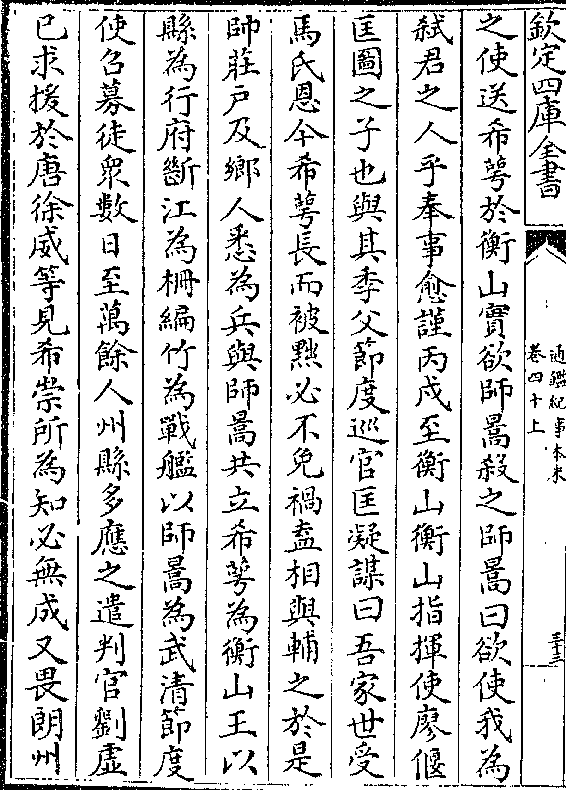 欽定四庫全書
通鑑紀事本末
卷四十上
三十三
之使送希萼於衡山實欲師暠殺之師暠曰欲使我為
弑君之人乎奉事愈謹丙戌至衡山衡山指揮使廖偃
匡圖之子也與其季父節度巡官匡凝謀曰吾家世受
馬氏恩今希萼長而被黜必不免禍盍相與輔之於是
帥莊戸及鄉人悉為兵與師暠共立希萼為衡山王以
縣為行府斷江為柵編竹為戰艦以師暠為武清節度
使召募徒衆數日至萬餘人州縣多應之遣判官劉虛
已求援於唐徐威等見希崇所為知必無成又畏朗州